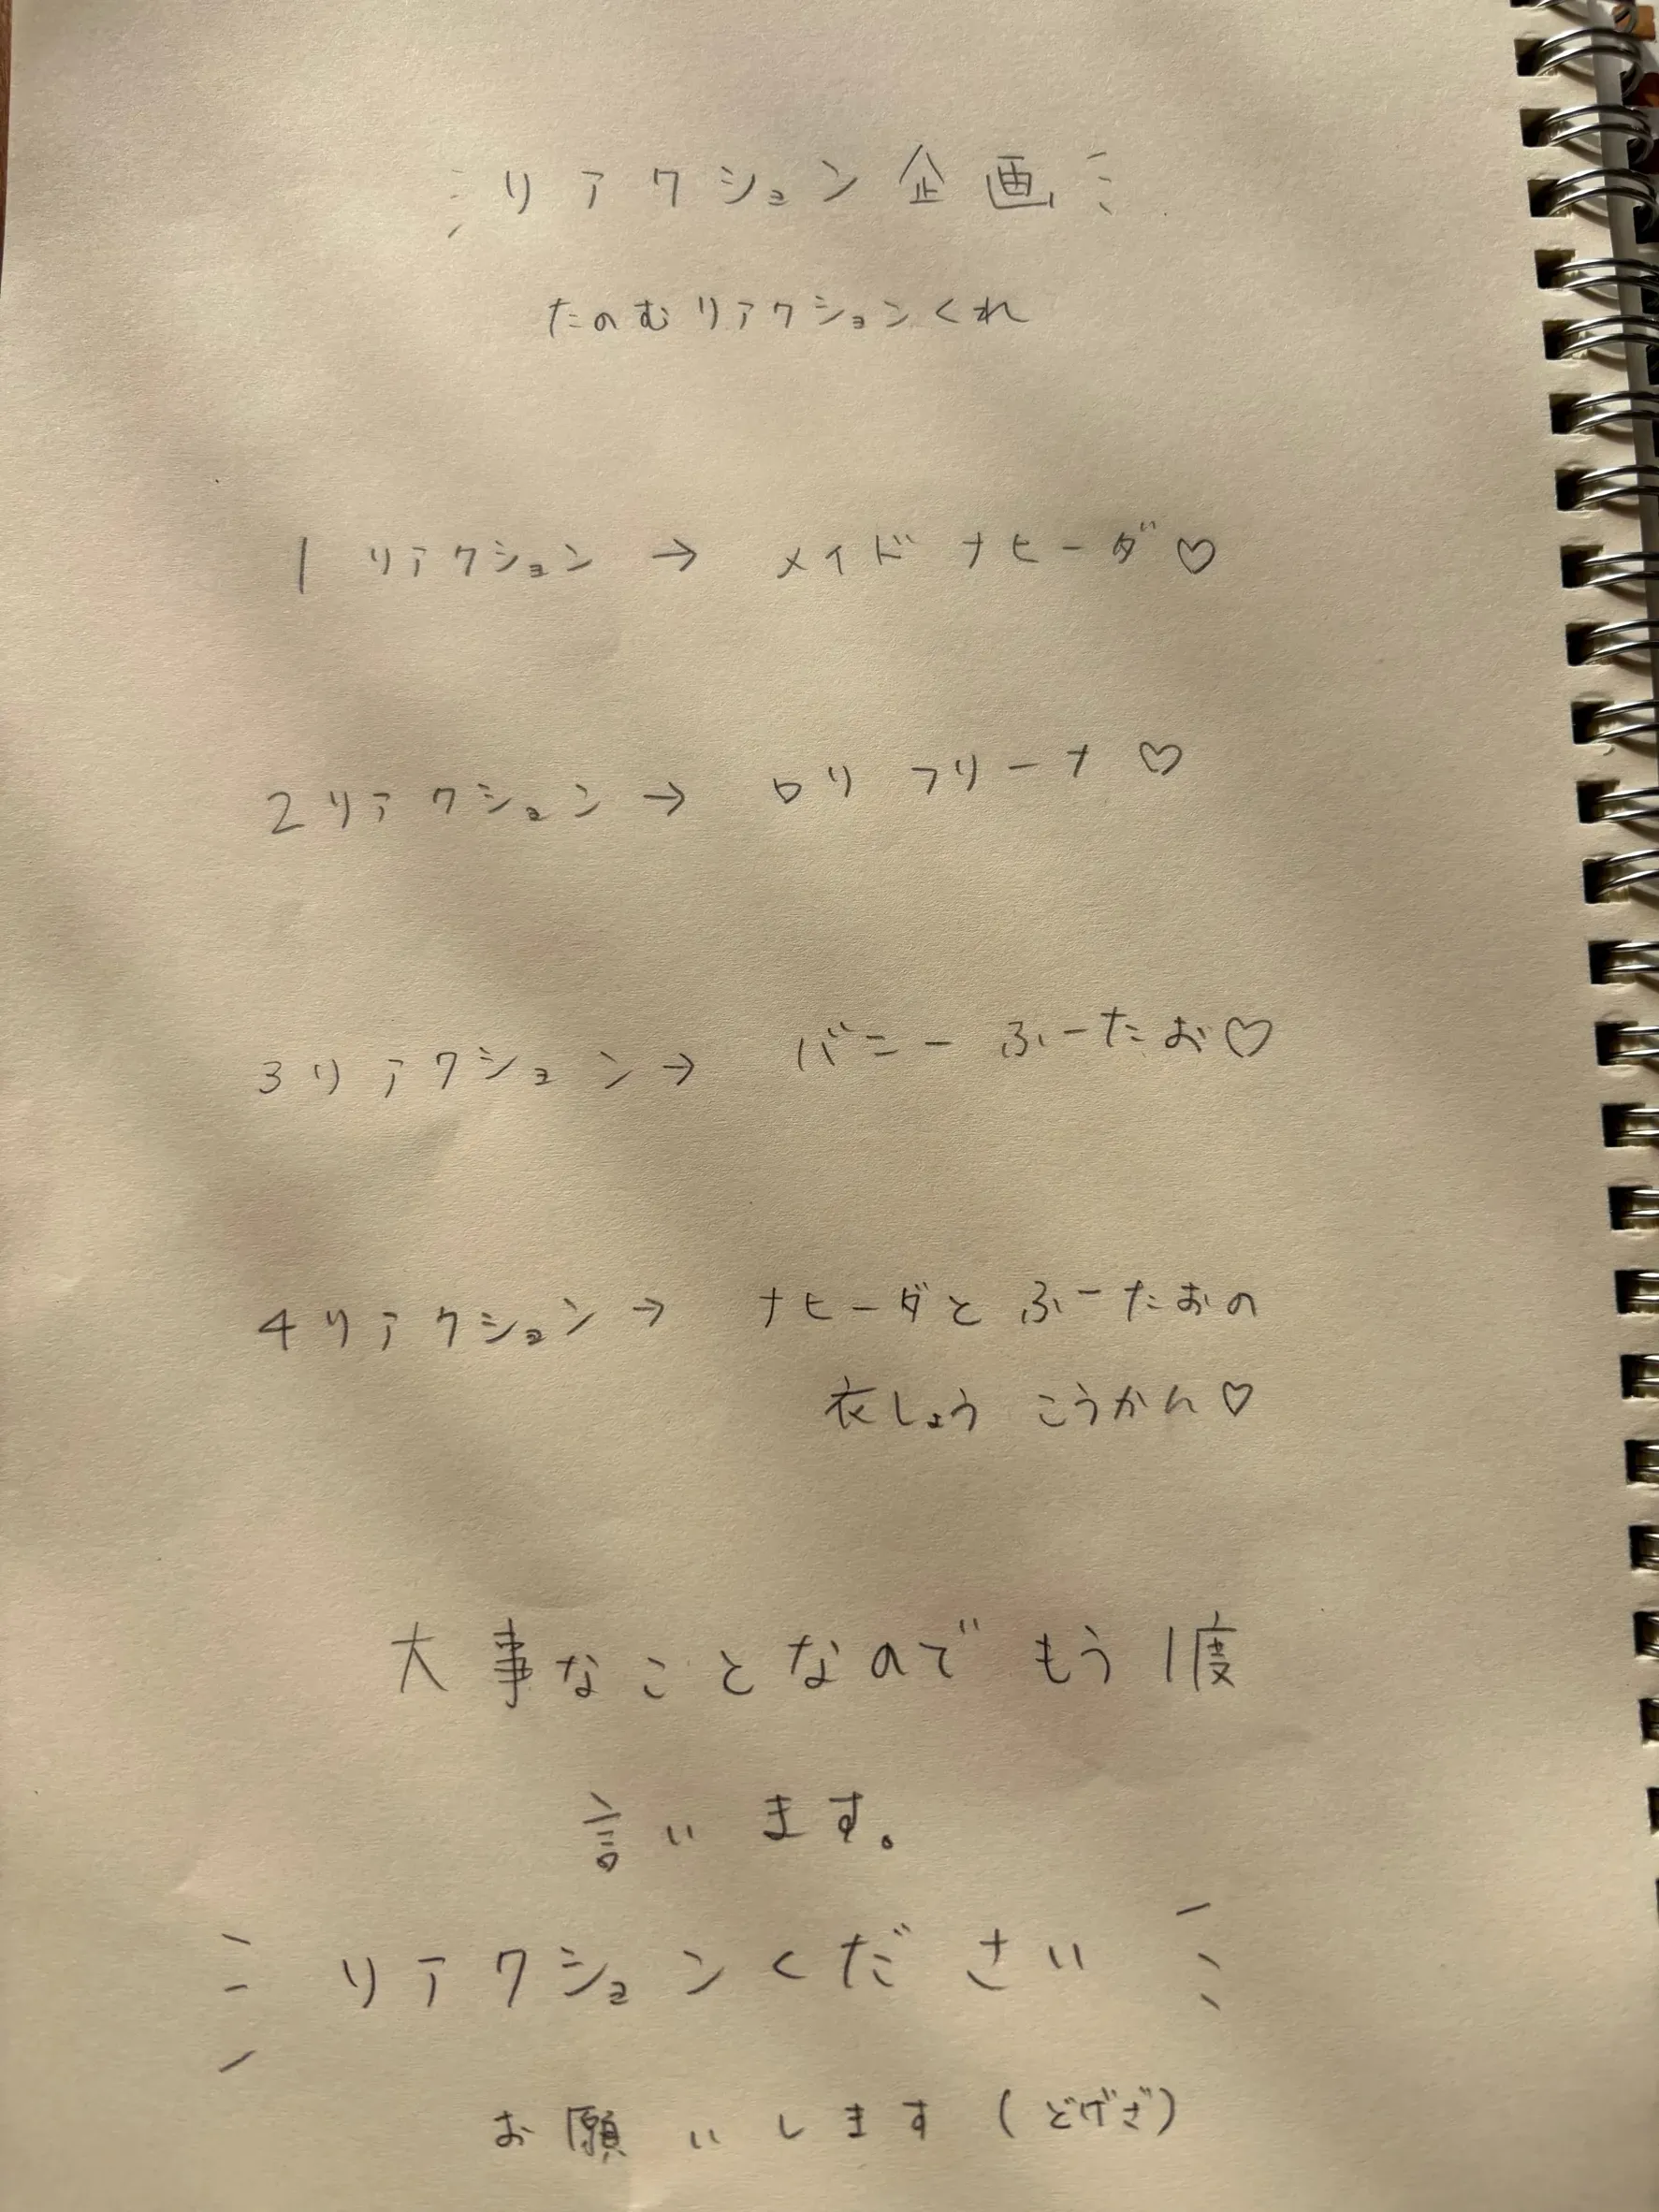 リアクション企画
たのむリアクションくれ
1 リアクション → メイド ナヒーダ♡
2 リアクション → ロリ フリーナ ♡
3 リアクション → バニー ふーたお♡
4 リアクション → ナヒーダと ふーたおの
衣しょう こうかん♡
大事なことなので もう 1度
言います。
リアクションください
お願いします (どげざ)